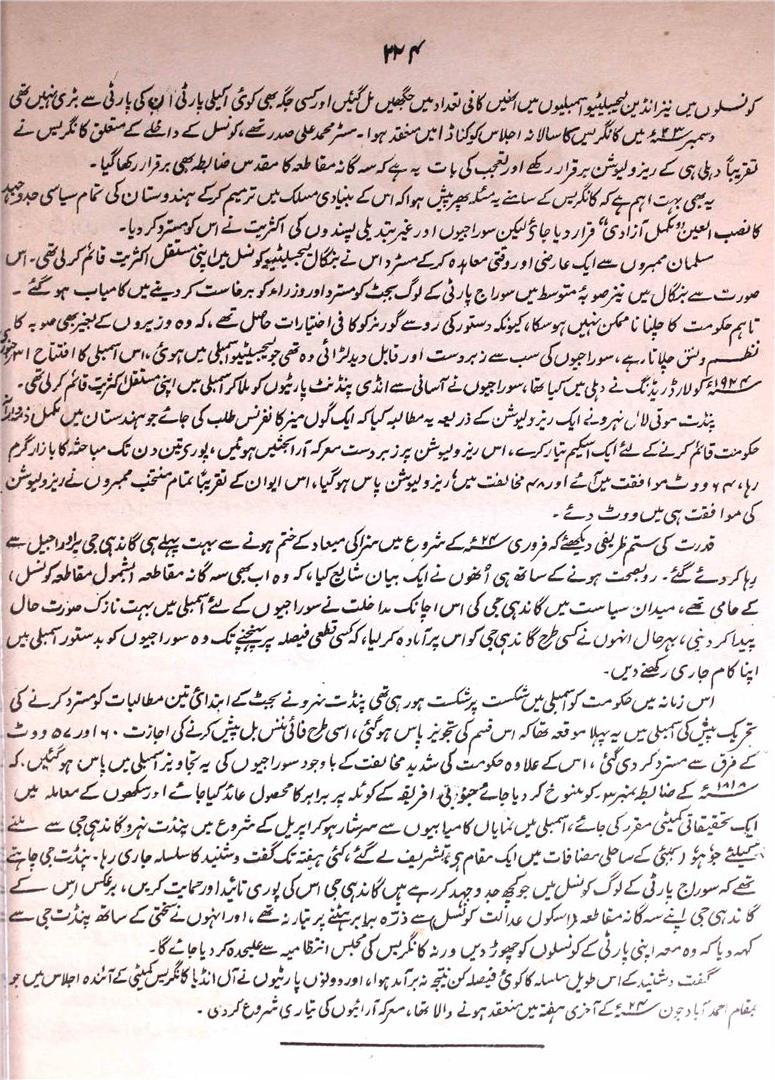 ۳۲۴
کونسلوں میں نیز انڈین لیجیلیٹیو اسمبلیوں میں انھیں کافی تعداد میں جگھیں مل گئیں اور کسی جگہ بھی کوئی اکیلی پارٹی ان کی پارٹی سے بڑی نہیں تھی
دسمبر ۲۳ء میں کانگریس کا سالانہ اجلاس کوکناڈا میں منعقد ہوا۔ مسٹر محمد علی صدر تھے، کونسل کے داخلے کے متعلق کانگریس نے
تقریباً دہلی ہی کے ریزولیوشن برقرار رکھے اور تعجب کی بات یہ ہے کہ سہ گانہ مقاطعہ کا مقدس ضابطہ بھی برقرار رکھا گیا۔
یہ بھی بہت اہم ہے کہ کانگریس کے سامنے یہ مسئلہ پھر پیش ہوا کہ اس کے بنیادی مسلک میں ترمیم کر کے ہندوستان کی تمام سیاسی جدوجہد
کا نصب العین "مکمل آزادی" قرار دیا جائے لیکن سوراجیوں اور غیر تبدیلی پسندوں کی اکثریت نے اس کو مسترد کر دیا۔
مسلمان ممبروں سے ایک عارضی اور وقتی معاہدہ کر کے مسٹر داس نے بنگال لیجیلیٹیو کونسل میں اپنی مستقل اکثریت قائم کر لی تھی۔ اس
صورت سے بنگال میں نیز صوبۂ متوسط میں سوراج پارٹی کے لوگ بجٹ کو مسترد اور وزراء کو برخاست کر دینے میں کامیاب ہو گئے۔
تاہم حکومت کا چلنا ناممکن نہیں ہو سکا، کیونکہ دستور کی رو سے گورنر کو کافی اختیارات حاصل تھے، کہ وہ وزیروں کے بغیر بھی صوبہ کا
نظم و نسق چلاتا رہے، سوراجیوں کی سب سے زبردست اور قابل دید لڑائی وہ تھی جو لیجیلیٹیو اسمبلی میں ہوئی، اس اسمبلی کا افتتاح ۳۱ جنوری
۱۹۲۴ء کو لارڈ ریڈنگ نے دہلی میں کیا تھا، سوراجیوں نے آسانی سے انڈی پنڈنٹ پارٹیوں کو ملا کر اسمبلی میں اپنی مستقل اکثریت قائم کر لی تھی۔
پنڈت موتی لال نہرو نے ایک ریزولیوشن کے ذریعہ یہ مطالبہ کیا کہ ایک گول میز کانفرنس طلب کی جائے جو ہندستان میں مکمل ذمہ دار
حکومت قائم کرنے کے لئے ایک اسکیم تیار کرے، اس ریزولیوشن پر زبردست معرکہ آرائیاں ہوئیں، پوری تین دن تک مباحثہ کا بازار گرم
رہا، ۶۴ ووٹ موافقت میں آئے اور ۴۸ مخالفت میں، ریزولیوشن پاس ہو گیا، اس ایوان کے تقریباً تمام منتخب ممبروں نے ریزولیوشن
کی موافقت ہی میں ووٹ دئے۔
قدرت کی ستم ظریفی دیکھئے کہ فروری ۲۴ء کے شروع میں سزا کی میعاد کے ختم ہونے سے بہت پہلے ہی گاندھی جی یراودا جیل سے
رہا کر دئے گئے۔ روبصحت ہونے کے ساتھ ہی اُنھوں نے ایک بیان شائع کیا، کہ وہ اب بھی سہ گانہ مقاطعہ (بشمول مقاطعہ کونسل)
کے حامی تھے، میدان سیاست میں گاندھی جی کی اس اچانک مداخلت نے سوراجیوں کے لئے اسمبلی میں بہت نازک صورت حال
پیدا کر دی، بہرحال انہوں نے کسی طرح گاندھی جی کو اس پر آمادہ کر لیا، کہ کسی قطعی فیصلہ پر پہنچنے تک وہ سوراجیوں کو بدستور اسمبلی میں
اپنا کام جاری رکھنے دیں۔
اس زمانہ میں حکومت کو اسمبلی میں شکست پر شکست ہو رہی تھی پنڈت نہرو نے بجٹ کے ابتدائی تین مطالبات کو مسترد کرنے کی
تحریک پیش کی اسمبلی میں یہ پہلا موقعہ تھا کہ اس قسم کی تجویز پاس ہو گئی، اسی طرح فائی ننس بل پیش کرنے کی اجازت ۶۰ اور ۵۷ ووٹ
کے فرق سے مسترد کر دی گئی، اس کے علاوہ حکومت کی شدید مخالفت کے باوجود سوراجیوں کی یہ تجاویز اسمبلی میں پاس ہو گئیں، کہ
۱۸۱۸ء کے ضابطہ نمبر ۳ کو منسوخ کر دیا جائے جنوبی افریقہ کے کوئلہ پر برابر کا محصول عائد کیا جائے اور سکھوں کے معاملہ میں
ایک تحقیقاتی کمیٹی مقرر کی جائے، اسمبلی میں نمایاں کامیابیوں سے سرشار ہو کر اپریل کے شروع میں پنڈت نہرو گاندھی جی سے ملنے
کیلئے جوہو (بمبئی کے ساحلی مضافات میں ایک مقام ہے) تشریف لے گئے، کئی ہفتہ تک گفت و شنید کا سلسلہ جاری رہا۔ پنڈت جی چاہتے
تھے کہ سوراج پارٹی کے لوگ کونسل میں جو کچھ جد و جہد کر رہے ہیں گاندھی جی اس کی پوری تائید اور حمایت کریں، برعکس اس کے
گاندھی جی اپنے سہ گانہ مقاطعہ (اسکول عدالت کونسل) سے ذرہ برابر ہٹنے پر تیار نہ تھے، اور انہوں نے سختی کے ساتھ پنڈت جی سے
کہہ دیا کہ وہ معہ اپنی پارٹی کے کونسلوں کو چھوڑ دیں ورنہ کانگریس کی مجلس انتظامیہ سے علیحدہ کر دیا جائے گا۔
گفت و شنید کے اس طویل سلسلہ کا کوئی فیصلہ کن نتیجہ نہ برآمد ہوا، اور دونوں پارٹیوں نے آل انڈیا کانگریس کمیٹی کے آئندہ اجلاس میں جو
بمقام احمد آباد جون ۲۴ء کے آخری ہفتہ میں منعقد ہونے والا تھا، معرکہ آرائیوں کی تیاری شروع کر دی۔